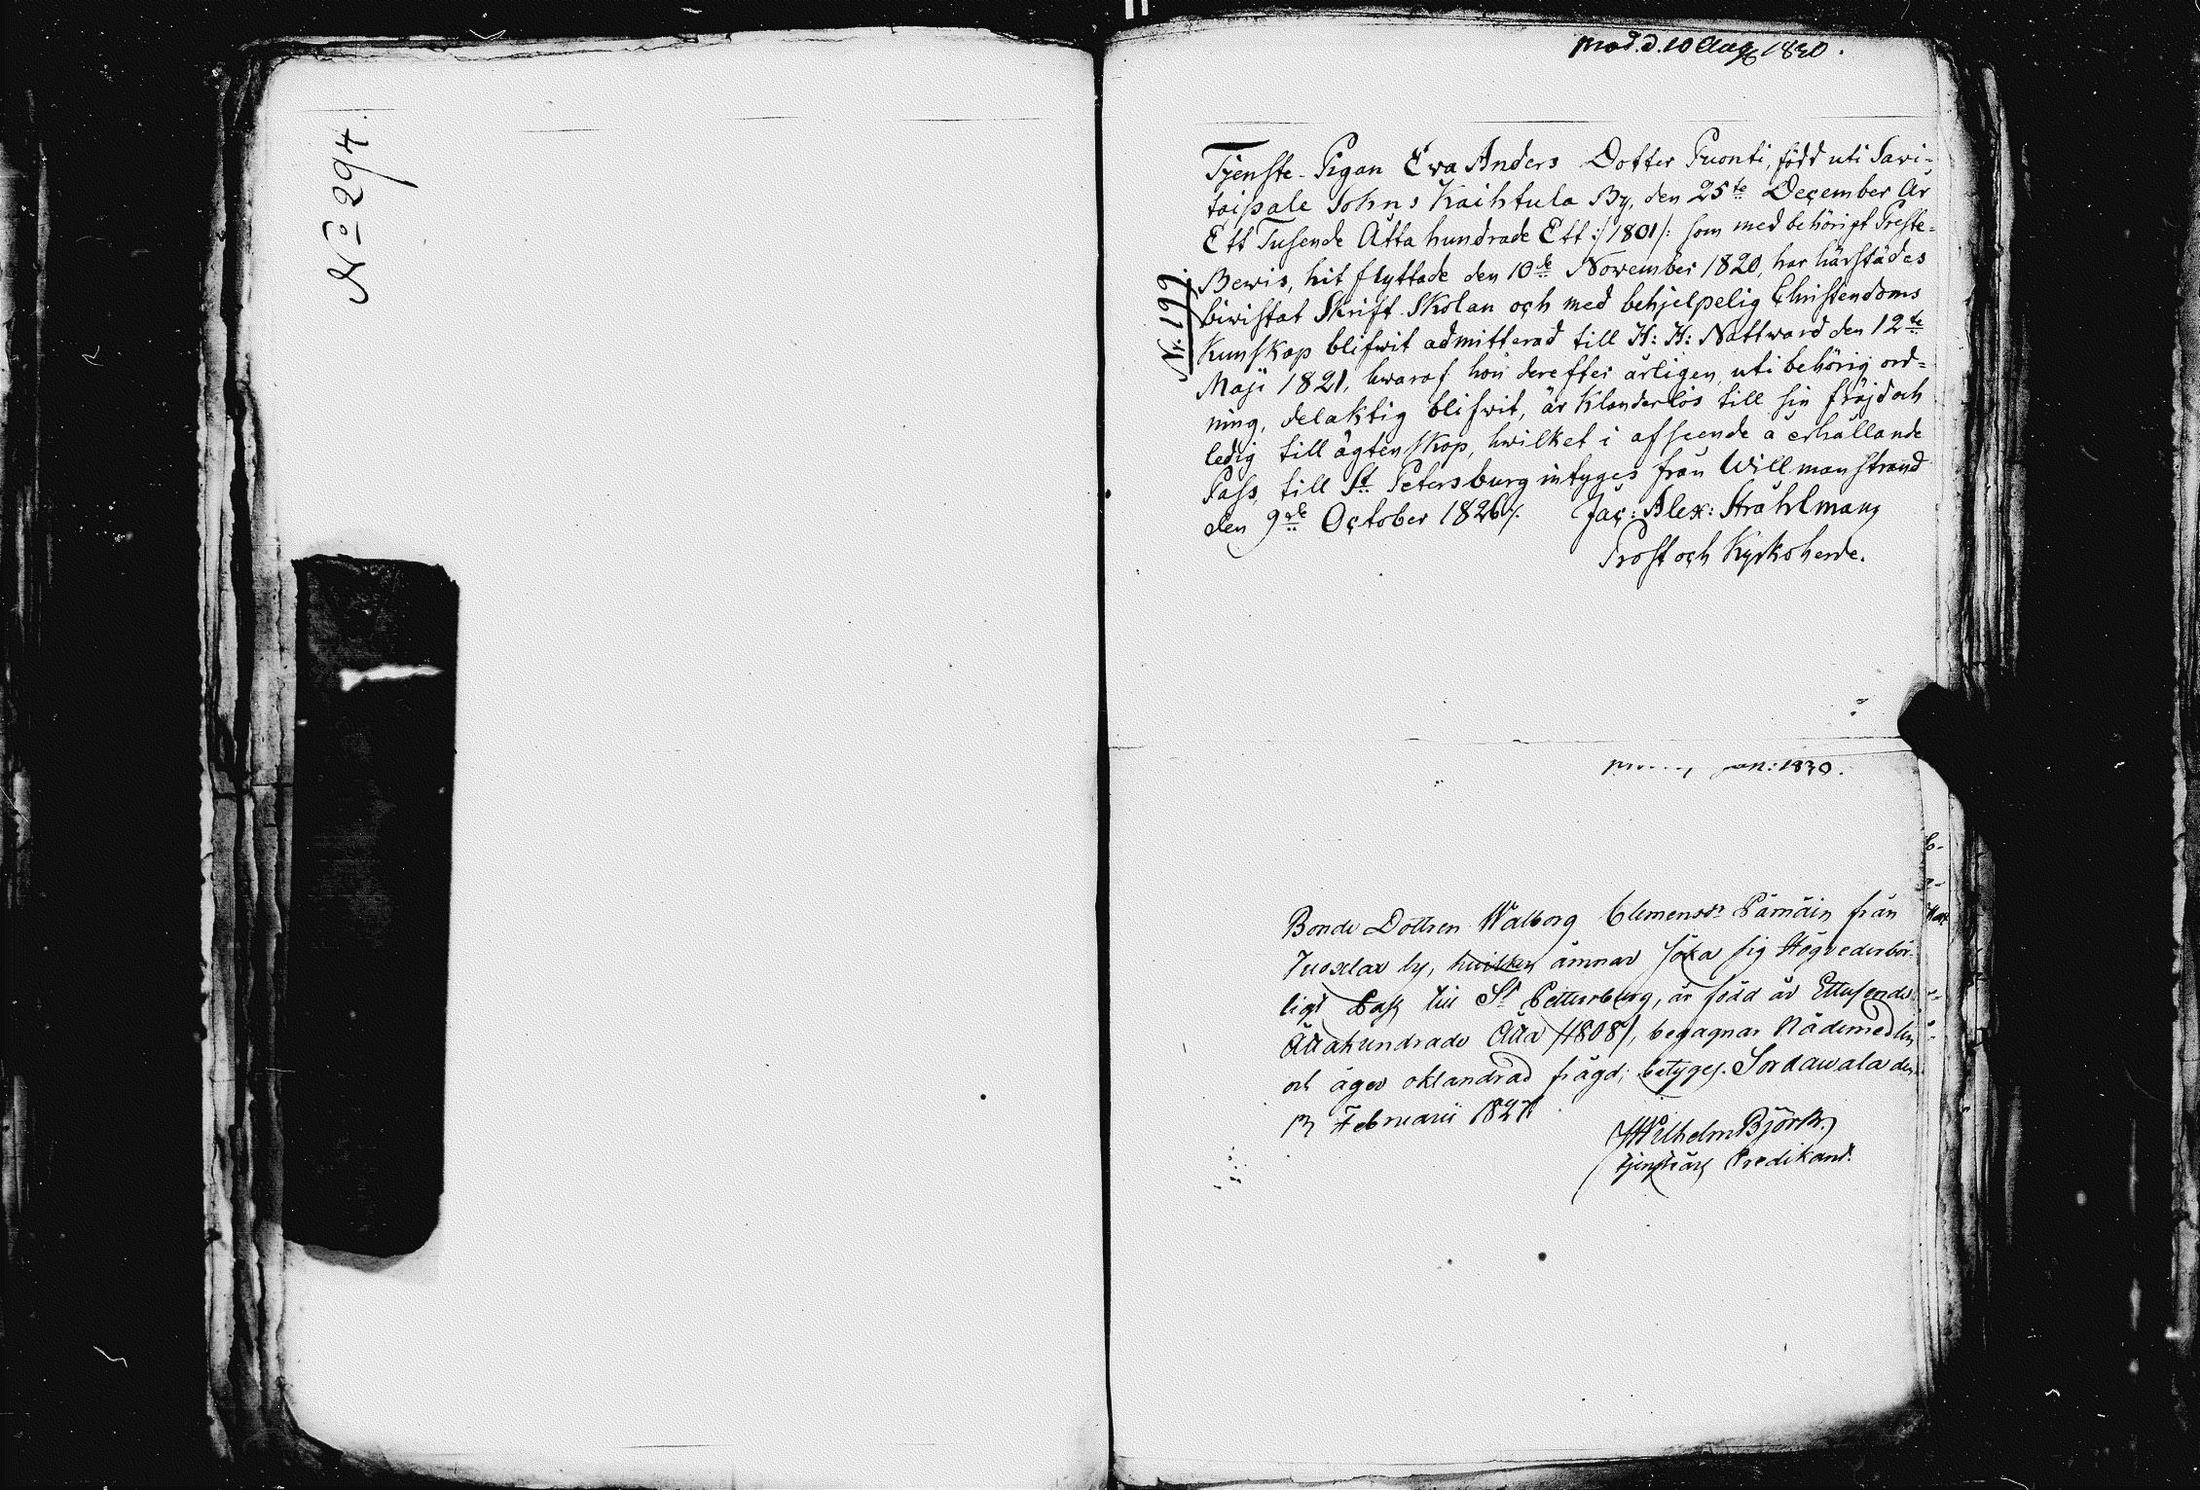 No 294.
prod. d. 10 Aug 1830.
Nr. 199.
Tjenste-Pigan Ewa Anders Dotter Puonti, född uti Savi-
taipale Sohns Kaihtula By, den 25te December År
Ett Tusende Åtta hundrade Ett :/1801/: som med behörigt Preste-
Bewis, hit flyttade den 10de November 1820, har härstädes
biwistat Skrift-Skolan och med behjelpelig Christendoms
Kunskap blifwit admitterad till H: H: Nattward den 12te
Maji 1821, hwaraf hon derefter årligen, uti behörig ord-
ning, delaktig blifwit, är Klanderlös till sin fräjd och
ledig till ägtenskap, hwilket i afseende å erhållande
Pass till St Petersburg intyges från Willmanstrand
den 9de October 1826/.
Jac: Alex: Stråhlman
Prost och Kyrkoherde.
jan: 1830.
Bonde Dottren Walborg Clemensdr Pämäin från
by, hwilken ämnar söka sig Högvederbör-
ligt Pass till St Pettersburg, är född år Ettusende
Åttahundrade Åtta /1808/, begagnar Nådemedlen
och äger oklandrad frägd; betyges. Sordawala den
Februarii 1827.
Wilhelm Björk.
tjenstgör: Predikant.